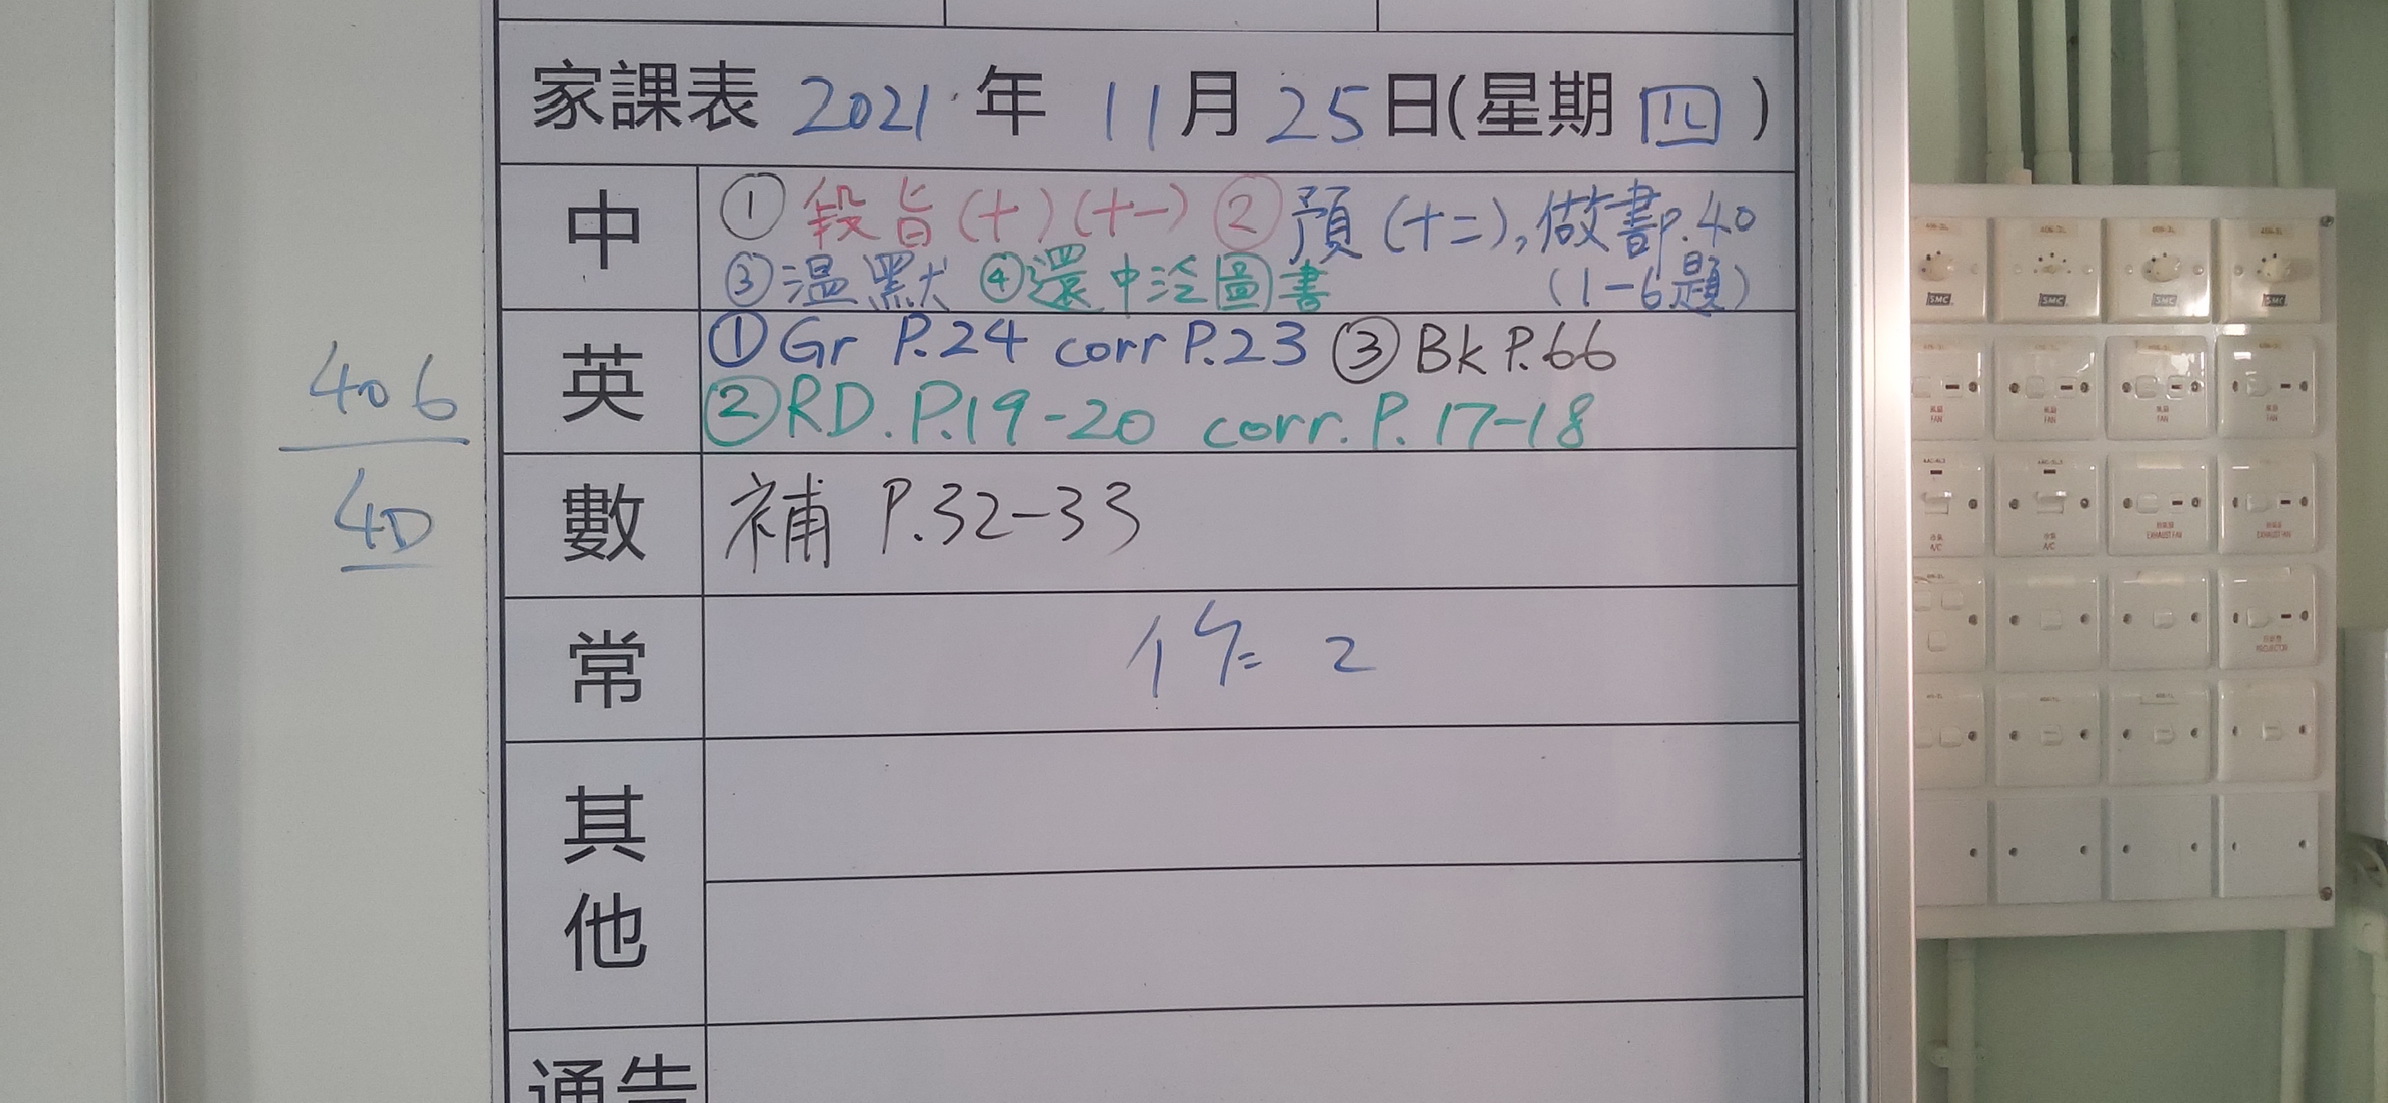 家課表 2021 年 11 月 25 日(星期 四)
中
① 段旨(十)(十一) ② 預(十二), 做書P.40
③温默 ④還中泛圖書 (1-6題)
英
① Gr P.24 corr P.23 ③ Bk P.66
② RD. P.19-20 corr. P. 17-18
數
補 P.32-33
常
作 2
其他
通告
406
4D
SMC SMC SMC SMC
FAN FAN FAN FAN
A/C A/C EXHAUST FAN EXHAUST FAN
PROJECTOR